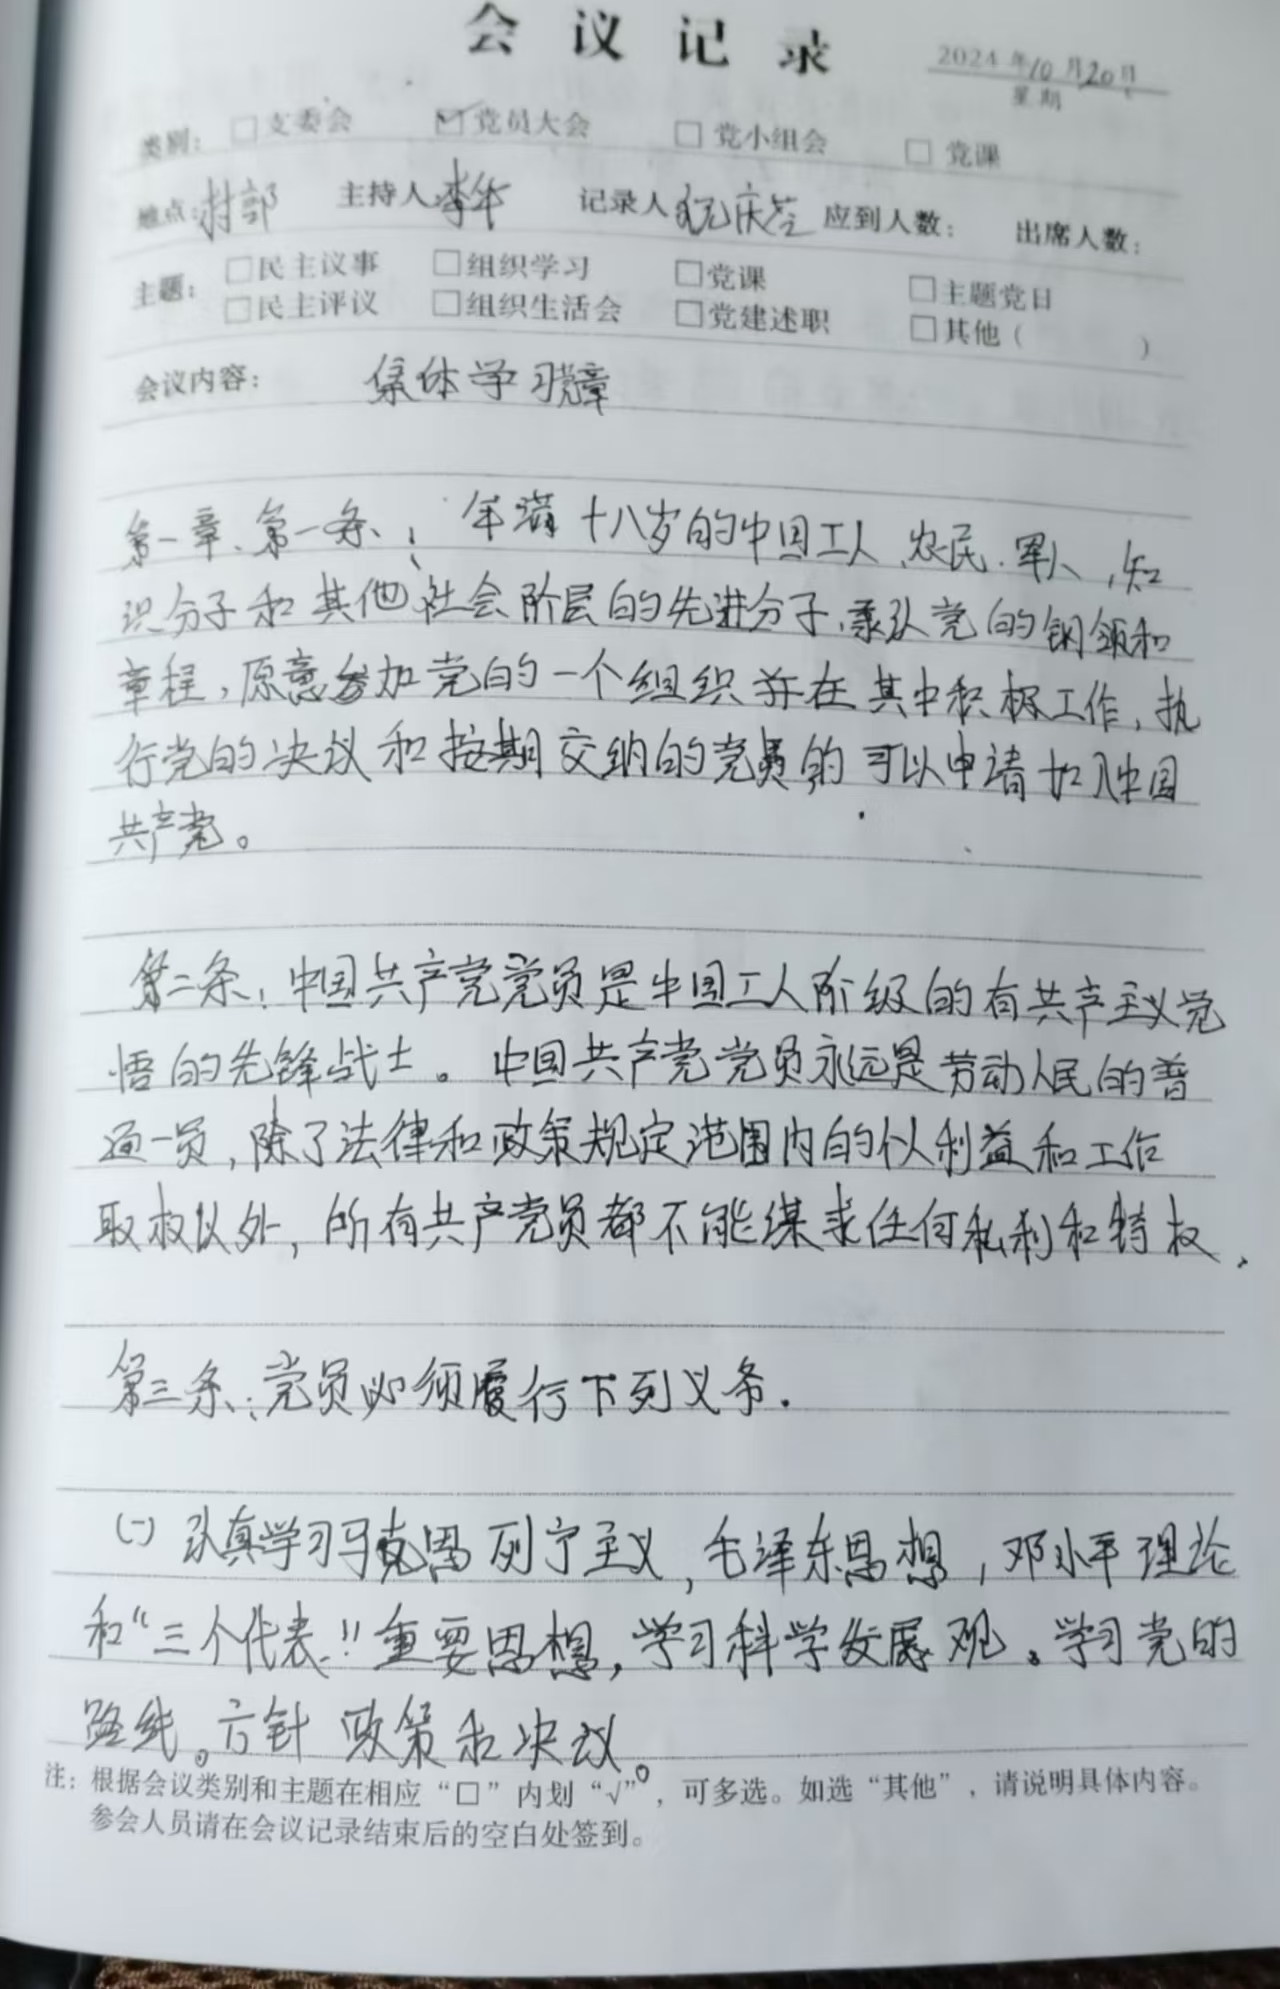 会议记录
2024年10月20日
星期
类别：□支委会 ☑党员大会 □党小组会 □党课
地点：村部 主持人李华 记录人 庆 应到人数： 出席人数：
主题：□民主议事 □组织学习 □党课 □主题党日
□民主评议 □组织生活会 □党建述职 □其他（ ）
会议内容： 集体学习党章
第一章、第一条：年满十八岁的中国工人、农民、军人，知
识分子和其他社会阶层的先进分子，承认党的纲领和
章程，原意参加党的一个组织并在其中积极工作，执
行党的决议和按期交纳的党员的可以申请加入中国
共产党。
第二条：中国共产党党员是中国工人阶级的有共产主义觉
悟的先锋战士。中国共产党党员永远是劳动人民的普
通一员，除了法律和政策规定范围内的个人利益和工作
取权以外，所有共产党员都不能谋求任何私利和特权、
第三条：党员必须履行下列义务.
(一) 认真学习马克思列宁主义，毛泽东思想，邓小平理论
和“三个代表”重要思想，学习科学发展观。学习党的
路线。方针 政策和决议。
注：根据会议类别和主题在相应“□”内划“√”，可多选。如选“其他”，请说明具体内容。
参会人员请在会议记录结束后的空白处签到。